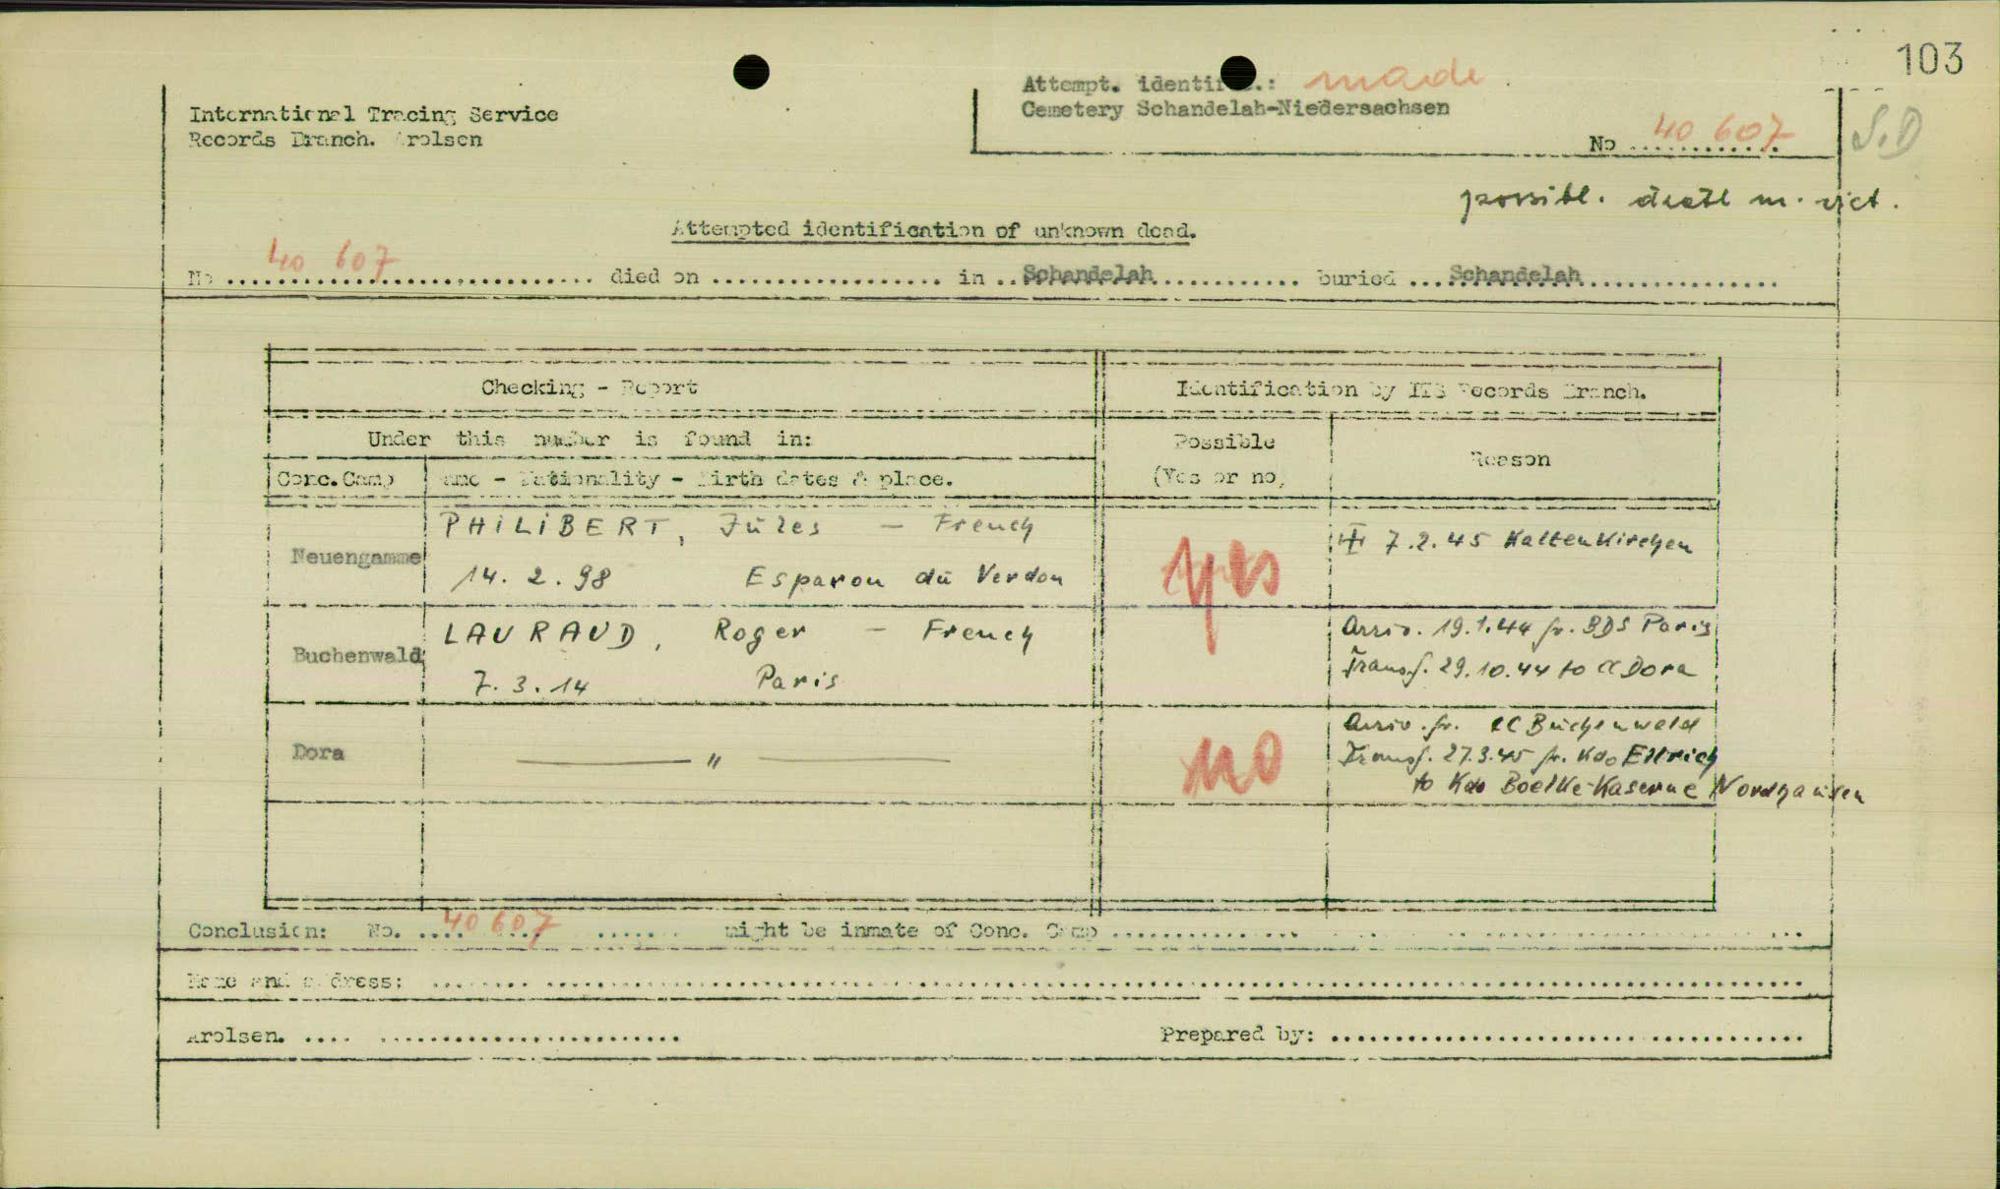 103
Attempt. identif...: made
International Tracing Service
Cemetery Schandelah-Niedersachsen
Records Branch. Arolsen
No 40 607
S.D
possibl. death m. vict.
Attempted identification of unknown dead.
No 40 607 died on in Schandelah buried Schandelah
Checking - Report
Identification by ITS Records Branch.
Under this number is found in:
Possible
(Yes or no)
Reason
Conc.Camp
Name - Nationality - Birth dates & place.
Neuengamme
PHILIBERT, Jules — French
14. 2. 98 Esparon du Verdon
yes
7.2.45 Kaltenkirchen
Buchenwald
LAURAUD, Roger — French
7. 3. 14 Paris
Arriv. 19.1.44 fr. BDS Paris
Transf. 29.10.44 to CC Dora
Dora
— " —
no
Arriv. fr. CC Buchenwald
Transf. 27.3.45 fr. Kdo Ellrich
to Kdo Boelke-Kaserne Nordhausen
Conclusion: No. 40 607 might be inmate of Conc. Camp
Name and address:
Arolsen.
Prepared by: